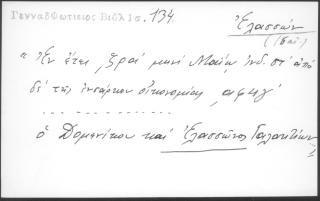 Γενναδ Φωτιειος Βιβλ Ισ. 134
Ἐλασσών
(18 αἰ)
"Ἐν ἔτει ,ζρα' μηνὶ Μαΐῳ ἰνδ. στ' ἀπὸ
δὲ τῆς ἐνσάρκου οἰκονομίας ,αφϟγ'
ὁ Δομενίκου καὶ Ἐλασσῶνος Γαλακτίων